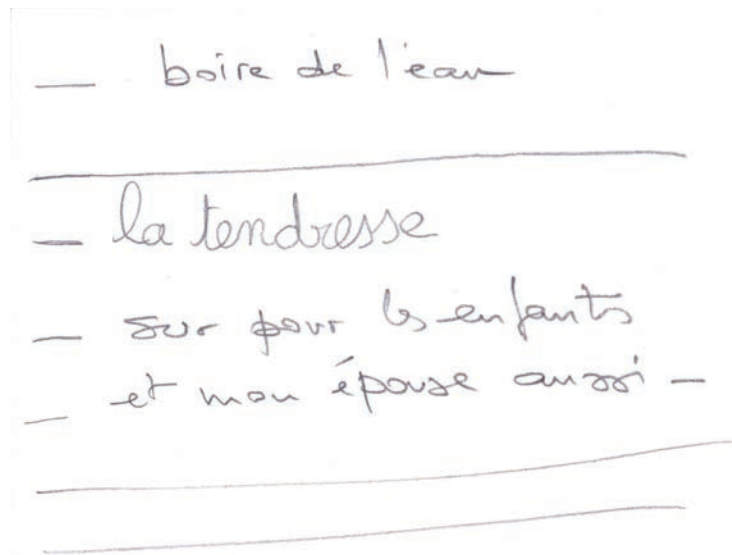 — boire de l'eau
— la tendresse
— sur pour les enfants
— et mon épouse aussi —